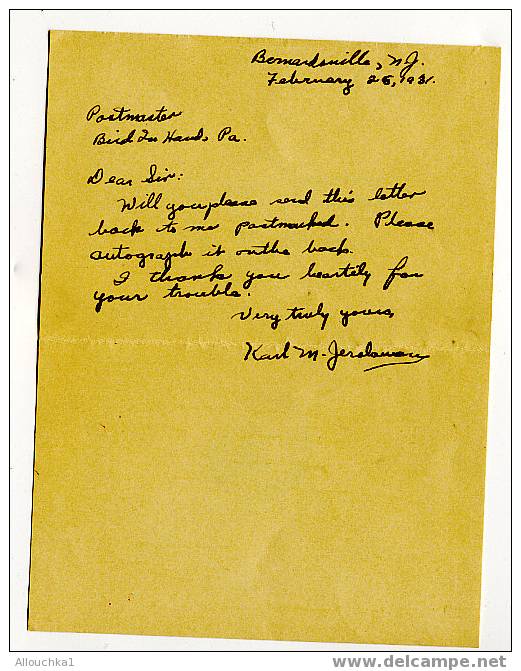 Bernardsville, N.J.
February 25, 1931.
Postmaster
Bird In Hand, Pa.
Dear Sir:
Will you please send this letter
back to me postmarked. Please
autograph it on the back.
I thank you heartily for
your trouble.
Very truly yours,
Karl M.
Allouchka1
www.delcampe.net